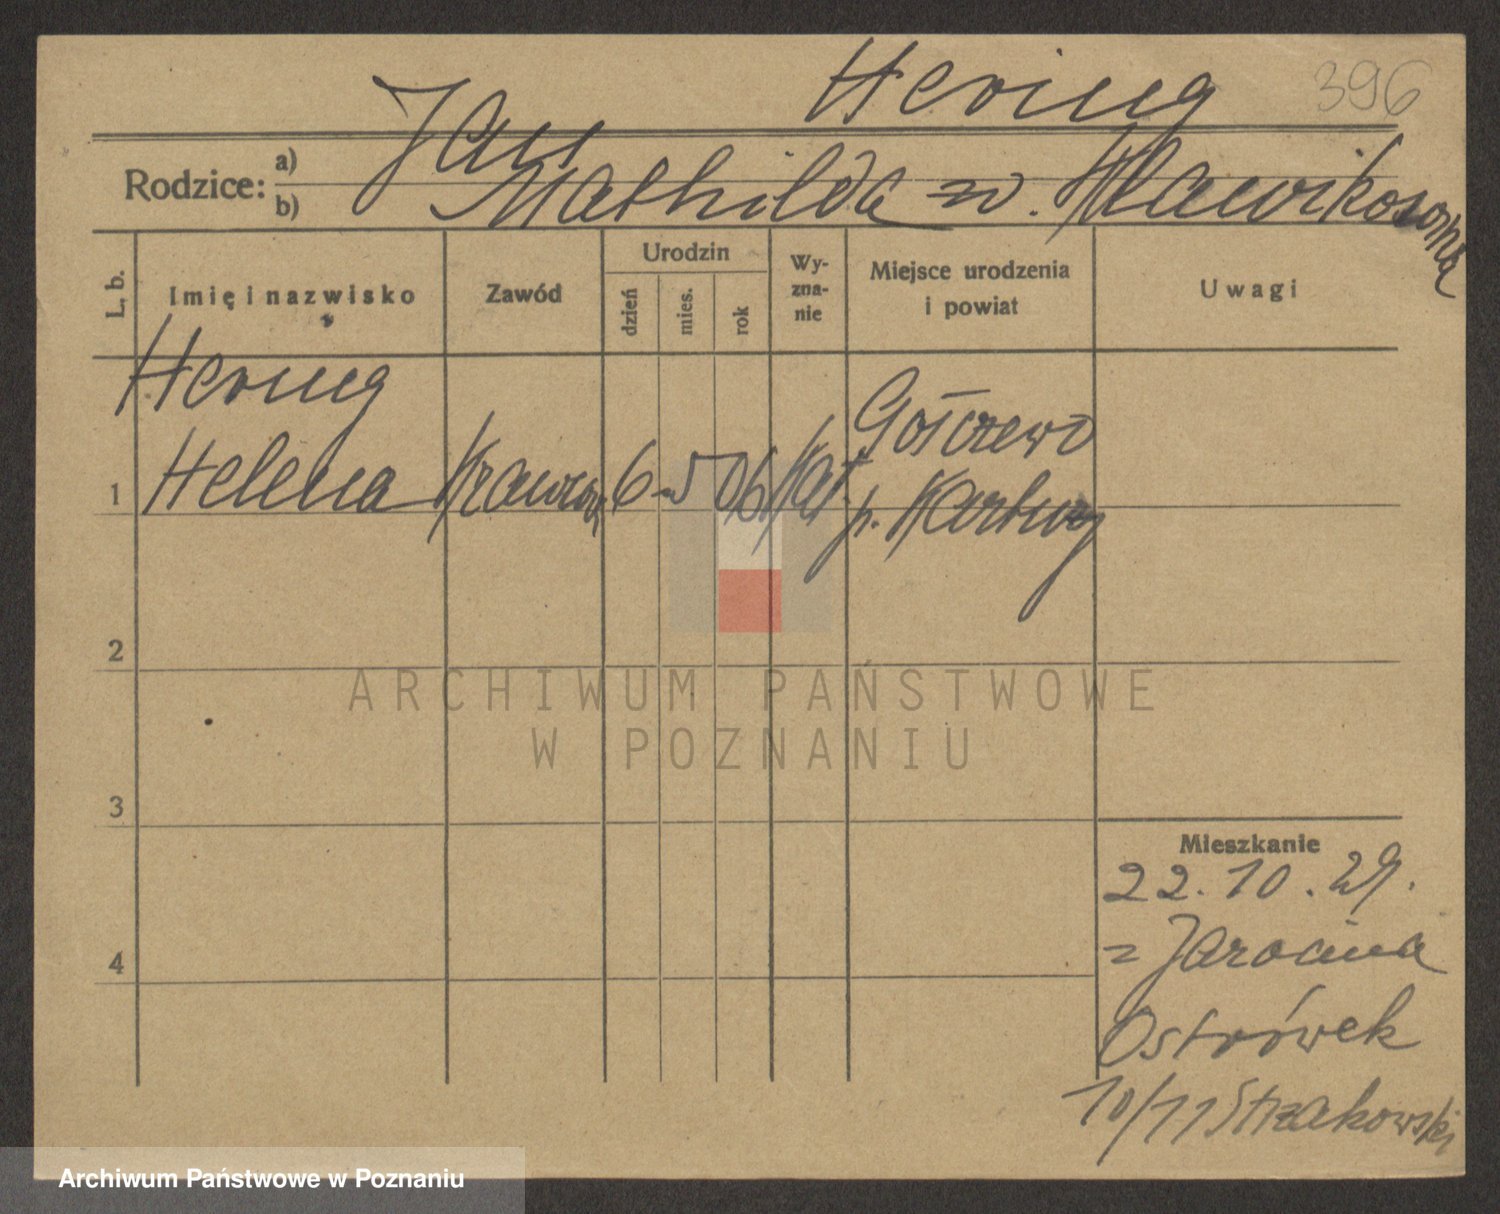 Hering 396
Jan
Rodzice: a)
b) Mathilda z d. Hlawikosowna
L. b. Imię i nazwisko Zawód Urodzin Wy-
zna-
nie Miejsce urodzenia
i powiat Uwagi
dzień mies. rok
Hering
1 Helena Krawcow. 6 5 06 Kat. Gościzewo
p. Kartuzy
2
ARCHIWUM PAŃSTWOWE
W POZNANIU
3
Mieszkanie
22. 10. 29.
z Jarocina
4
Ostrówek
10/11 Strzakowski
Archiwum Państwowe w Poznaniu